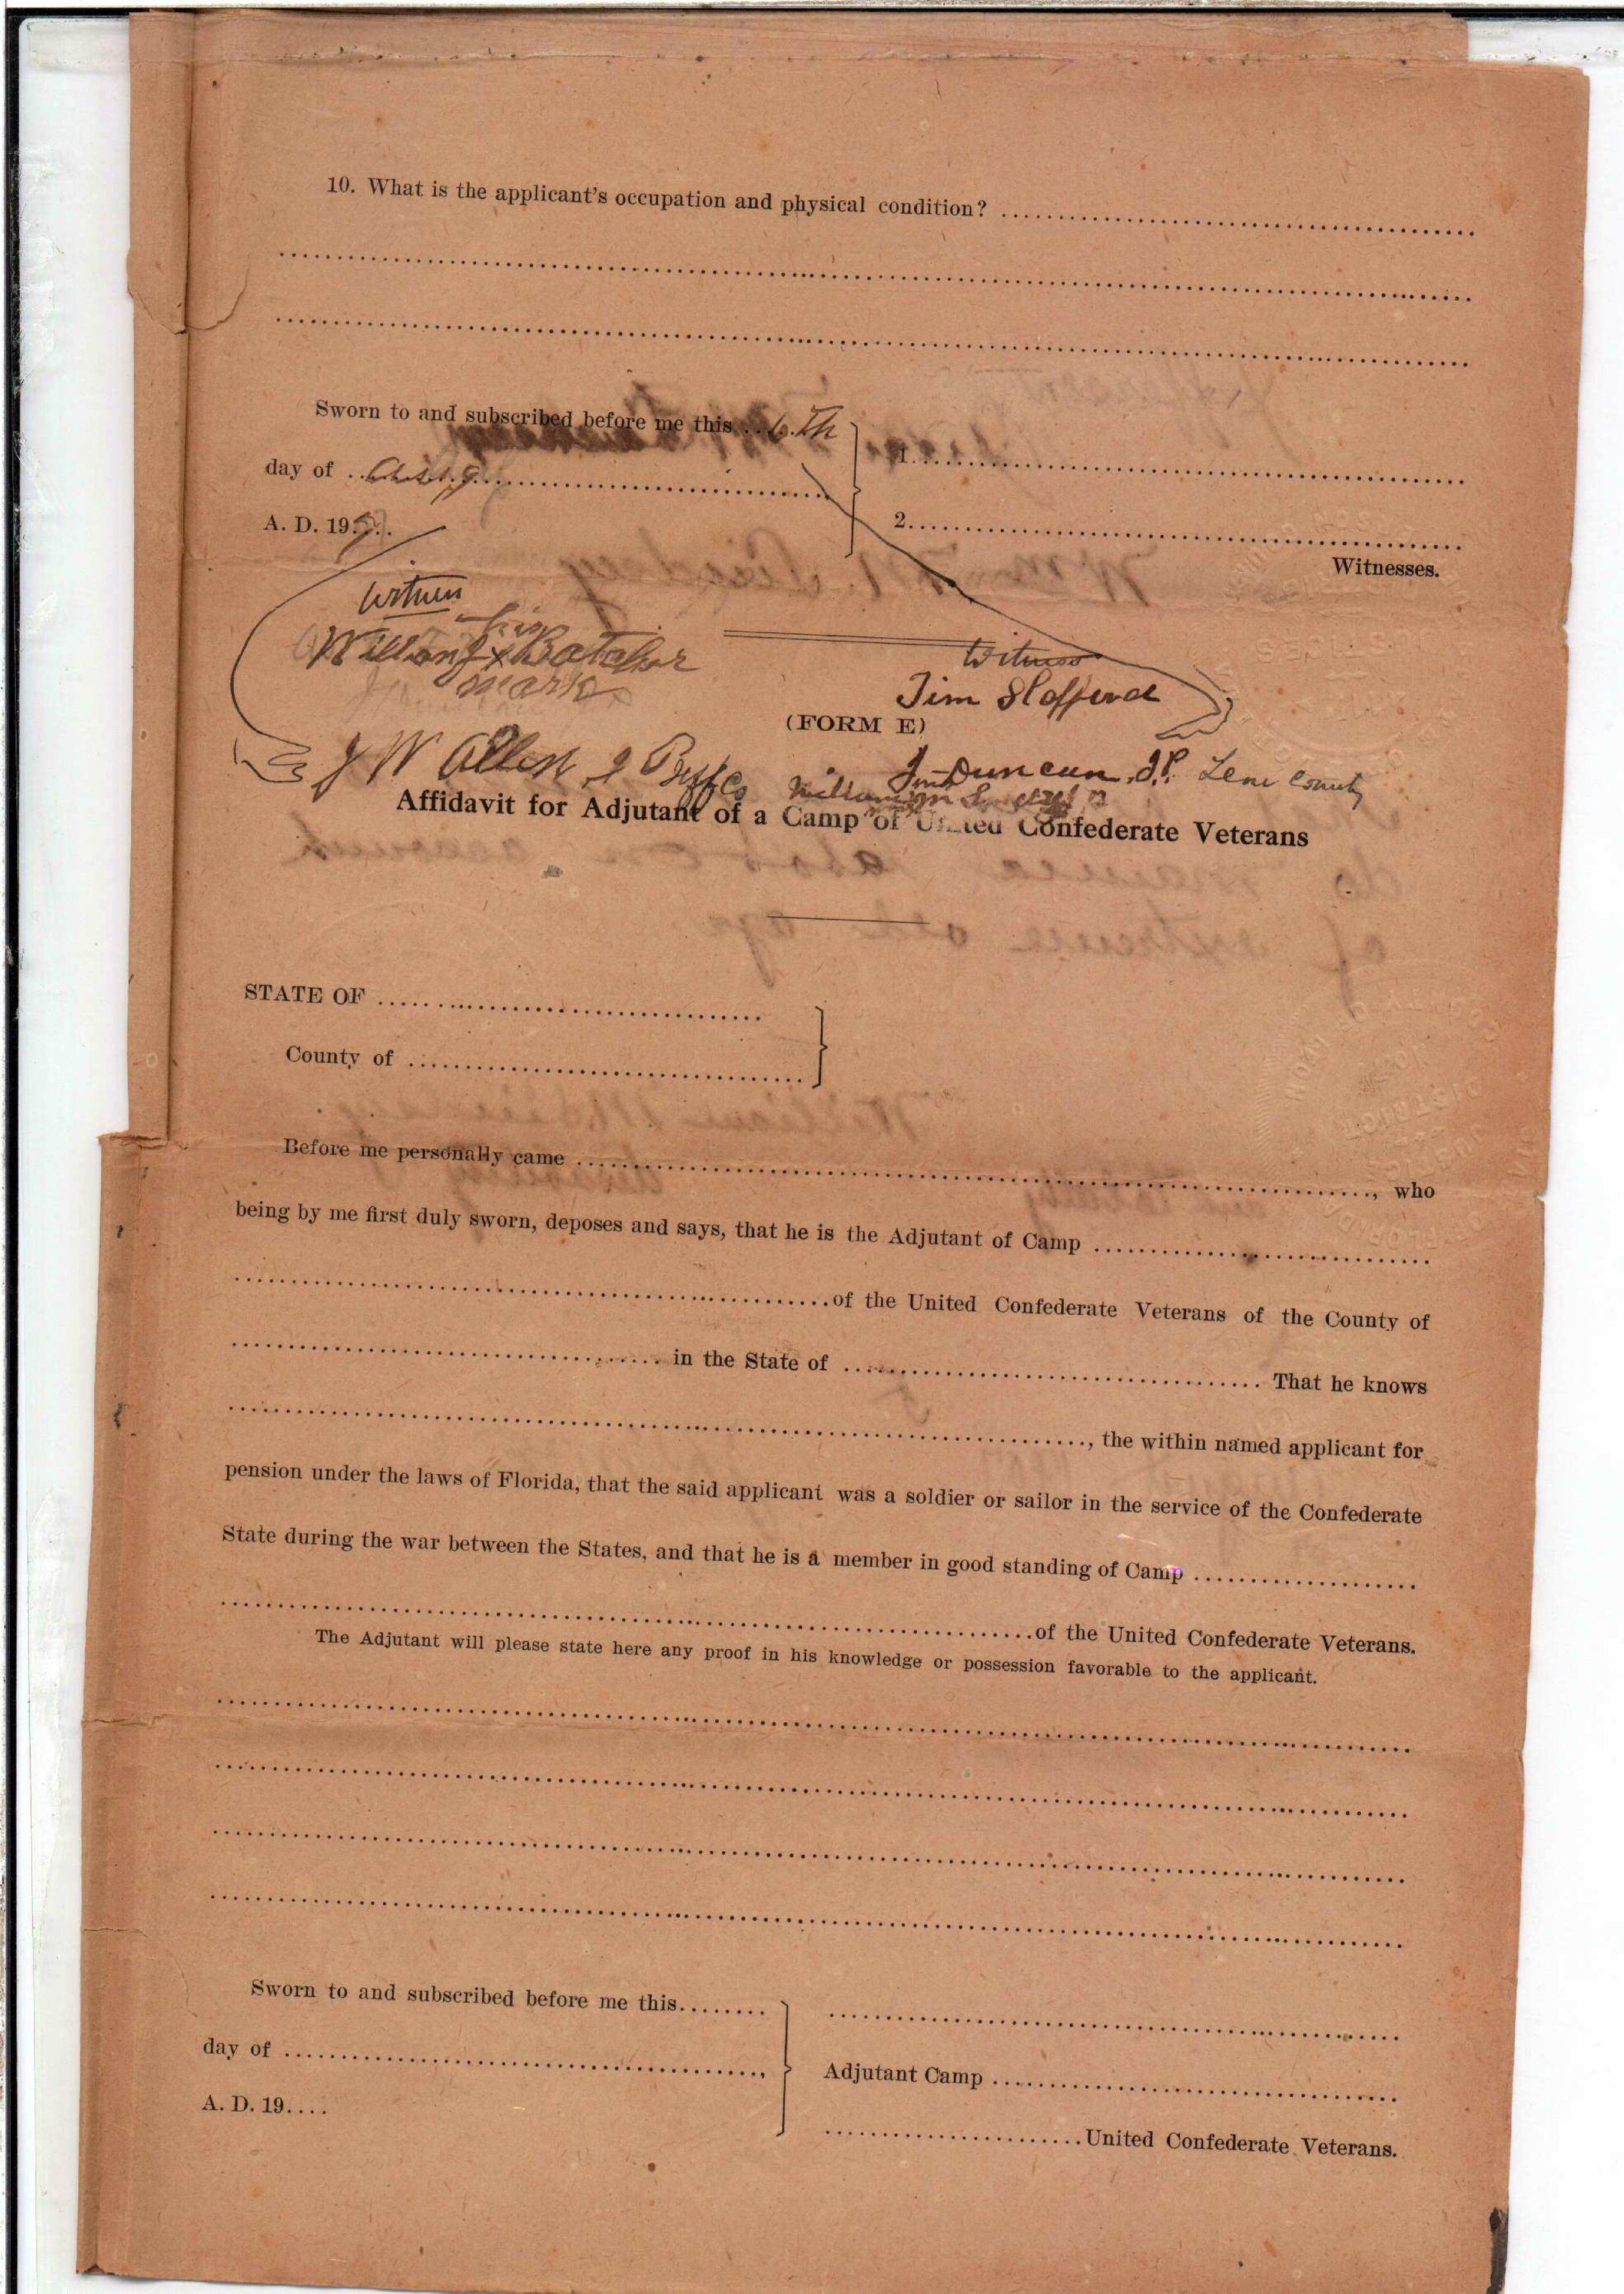 10. What is the applicant's occupation and physical condition? ........
Sworn to and subscribed before me this 6.Th
day of Aug
A. D. 19
1.
2.
Witnesses.
Witness
his
x
mark
Witness
Tim
(FORM E)
J W Allen
Duncan, J.P.
County
Affidavit for Adjutant of a Camp of United Confederate Veterans
STATE OF ........
County of ........
Before me personally came ........, who
being by me first duly sworn, deposes and says, that he is the Adjutant of Camp ........
........of the United Confederate Veterans of the County of
........ in the State of ........ That he knows
........, the within named applicant for
pension under the laws of Florida, that the said applicant was a soldier or sailor in the service of the Confederate
State during the war between the States, and that he is a member in good standing of Camp ........
........of the United Confederate Veterans.
The Adjutant will please state here any proof in his knowledge or possession favorable to the applicant.
Sworn to and subscribed before me this........
day of ........,
A. D. 19....
Adjutant Camp ........
........United Confederate Veterans.